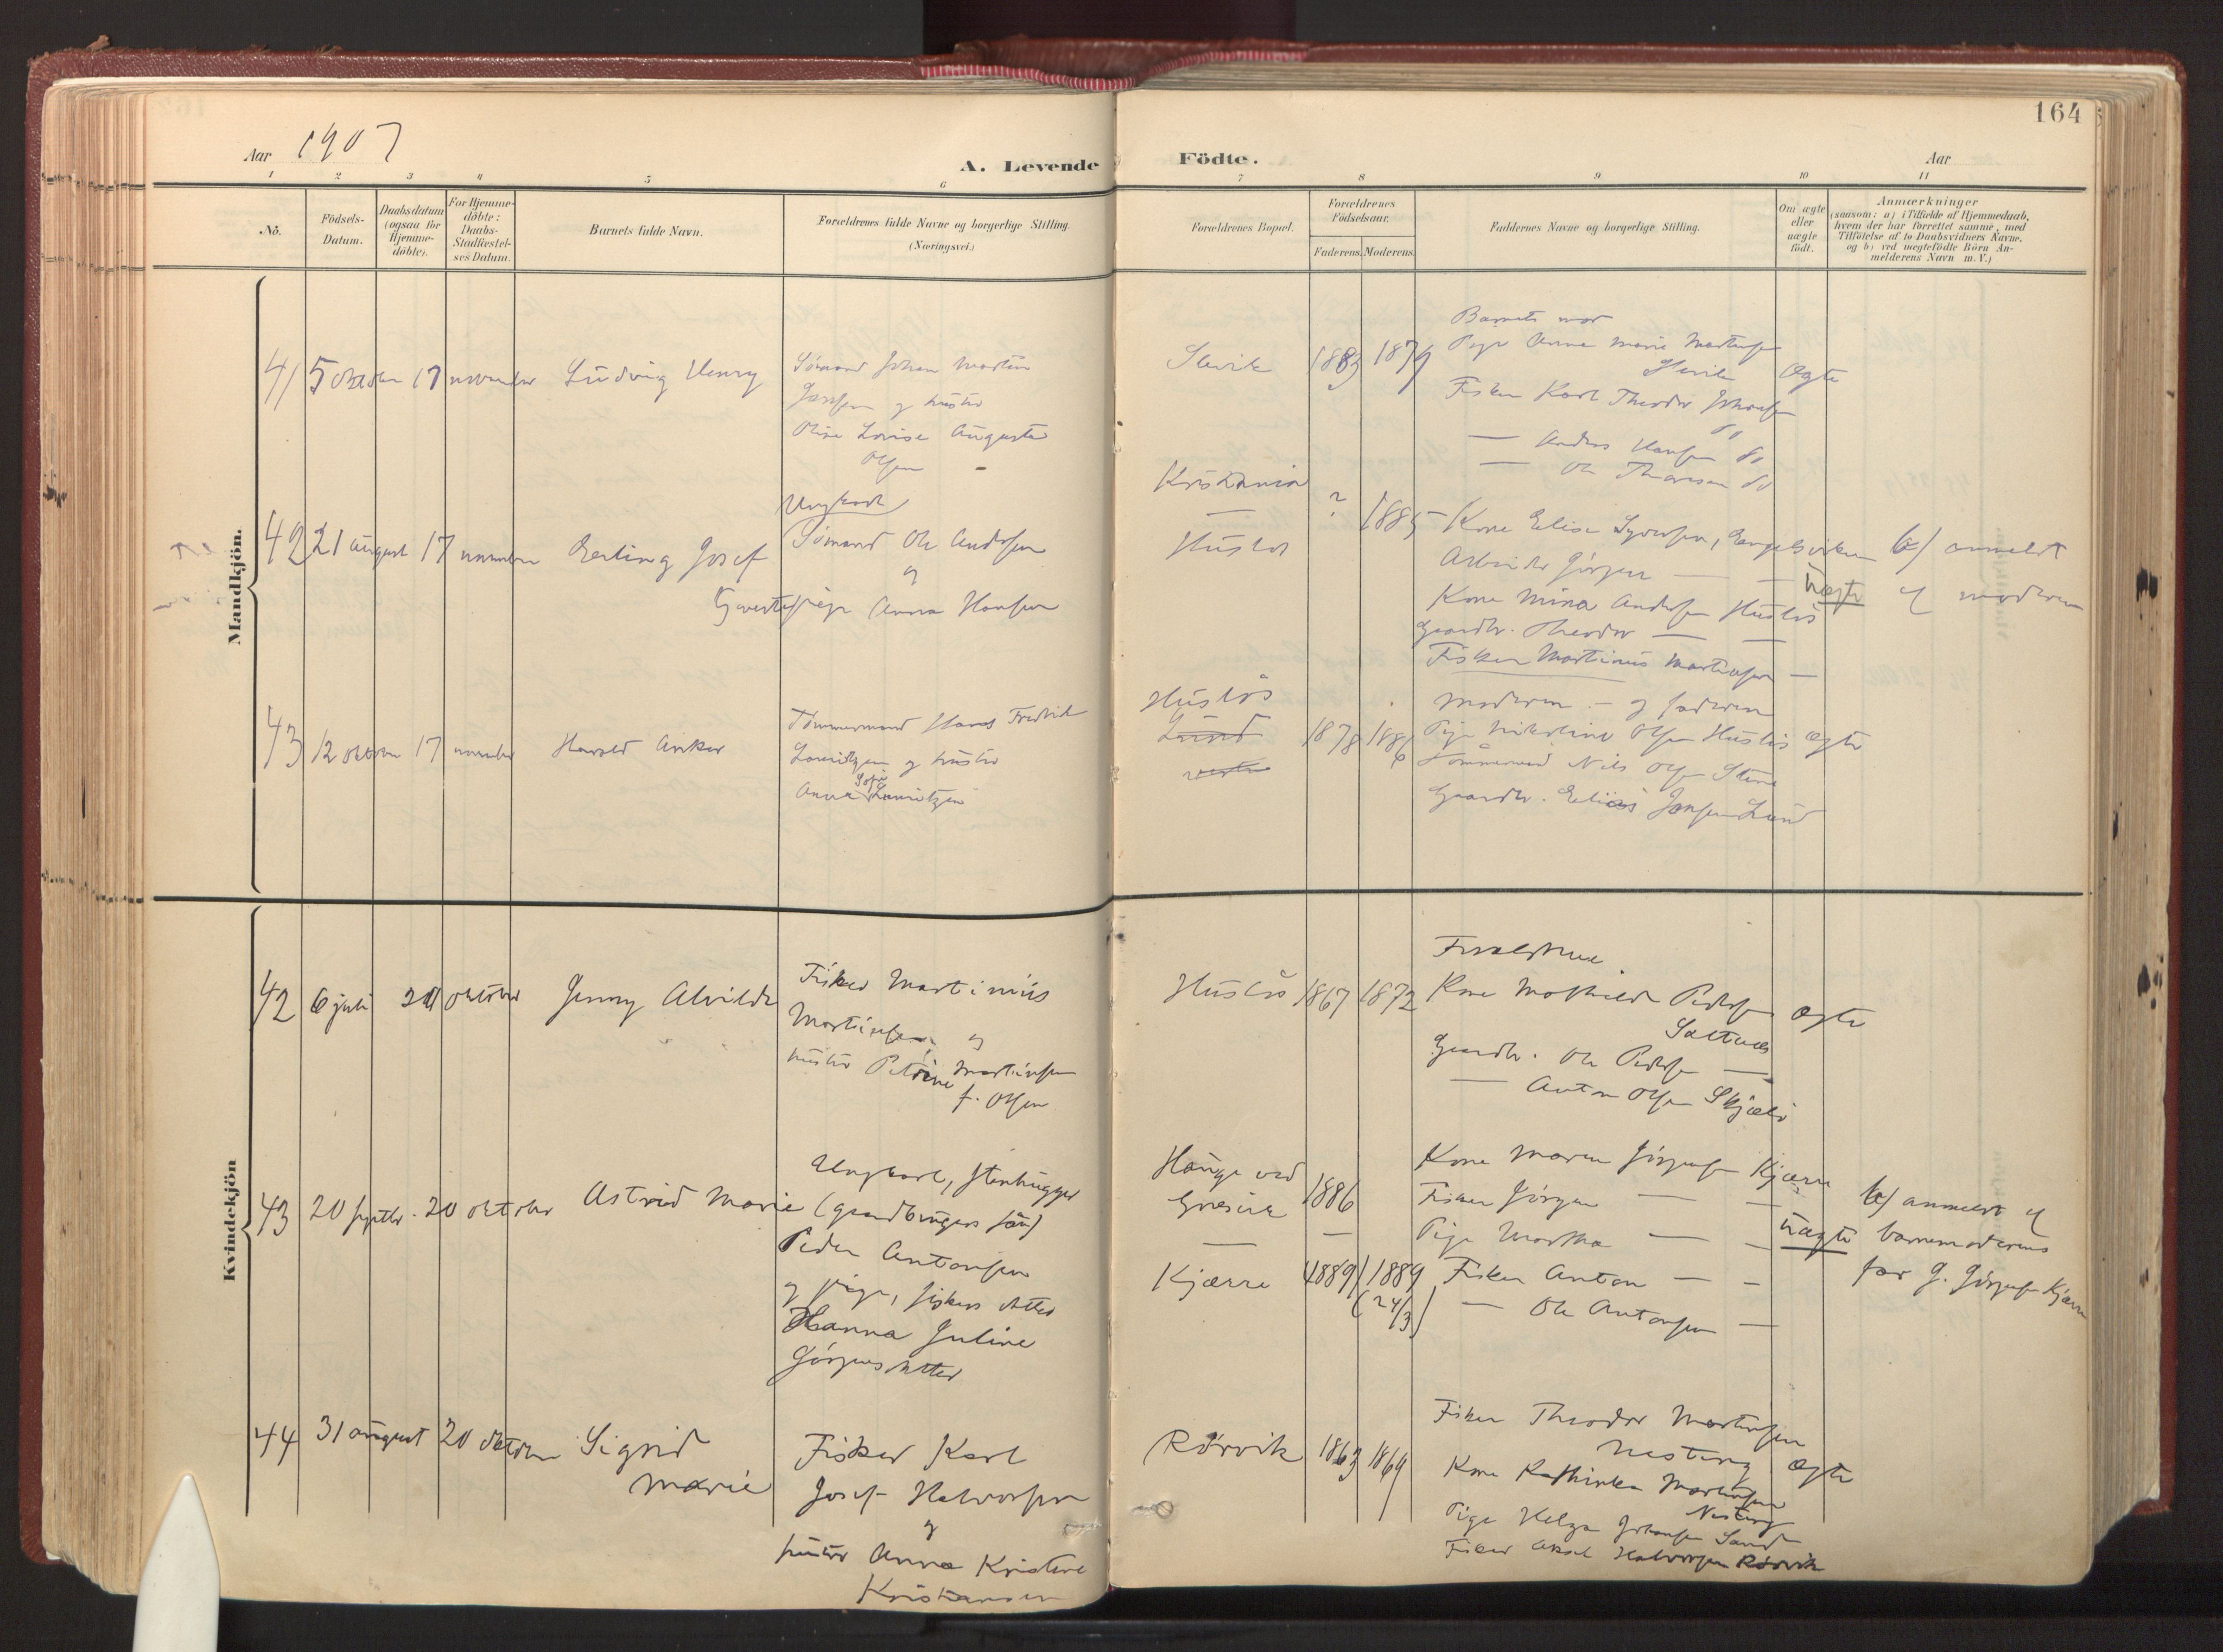 164
Aar 1907
A. Levende Födte.
Aar
1 2 3 4 5 6 7 8 9 10 11
No.
Födsels-Datum.
Daabsdatum (ogsaa for Hjemme-döbte).
For Hjemme-döbte: Daabs-Stadfæstel-ses Datum.
Barnets fulde Navn.
Forældrenes fulde Navne og borgerlige Stilling.
(Næringsvei.)
Forældrenes Bopæl.
Forældrenes Födselsaar.
Faderens. Moderens.
Faddernes Navne og borgerlige Stilling.
Om ægte eller uægte födt.
Anmærkninger
(saasom: a) i Tilfælde af Hjemmedaab,
hvem der har forrettet samme, med
Tilföielse af to Daabsvidners Navne,
og b) ved uægtefödte Börn An-
melderens Navn m. V.)
Mandkjön.
41 5 oktober 17 november Ludvig Henry
Sömand Johan Martin
Jansen og hustru
Olise Lovise Augusta
Olsen
1883 1879
Barnets mor
Pige Anna Marie Martinsen
Fisker Karl Theodor Johansen
do
— Anders Hansen do
— Ole Thoresen do
ægte
42 21 august 17 november Erling Josef
Ungkarl
Sömand Ole Andersen
og
pige Anna Hansen
Kristiania
—
Huslös
? 1885
Kone Elise Syversen, Engelsviken
Arbeider Jörgen — —
Kone Mina Andersen Huslös
Gaardbr. Theodor — —
Fisker Martinius Martinsen —
uægte
b) anmeldt
af moderen
43 12 oktober 17 november Harald Anker
Tömmermand Hans Fredrik
Lauritzen og hustru
Anna Sofie Lauritzen
Huslös
Lund
vestre
1878 1886
Moderen — og faderen
Pige Nikoline Olsen Huslös
Tömmermand Nils Olsen Stene
Gaardbr. Elias Jansen Lund
ægte
Kvindekjön
42 6 juli 20 oktober Jenny Alvilde
Fisker Martinius
Martinsen og
hustru Petrine Martinsen
f. Olsen
Huslös
1867 1872
Forældrene
Kone Mathilde Pedersen
Saltnes
Gaardbr. Ole Pedersen —
— Anton Olsen Skjælö
ægte
43 20 septbr. 20 oktober Astrid Marie
Ungkarl, stenhugger
(gaardbrugers sön)
Peder Antonsen
og pige, fiskers datter
Hanna Juline
Jörgensdatter
Hauge ved
Gresvik
—
Kjærre
1886
—
1889 1889
(24/3)
Kone Maren Jörgensen Kjærre
Fisker Jörgen — —
Pige Martha — —
Fisker Anton — —
— Ole Antonsen —
uægte
b) anmeldt af
barnemoderens
far G. Jörgensen Kjærre
44 31 august 20 oktober Sigrid
Marie
Fisker Karl
Josef Halvorsen
og
hustru Anna Kristine
Kristiansen
Rörvik
1863 1869
Fisker Theodor Martinsen
Nesteng
Kone Kathinka Martinsen
Nesteng
Pige Helga Johansen Sand
Fisker Aksel Halvorsen Rörvik
ægte